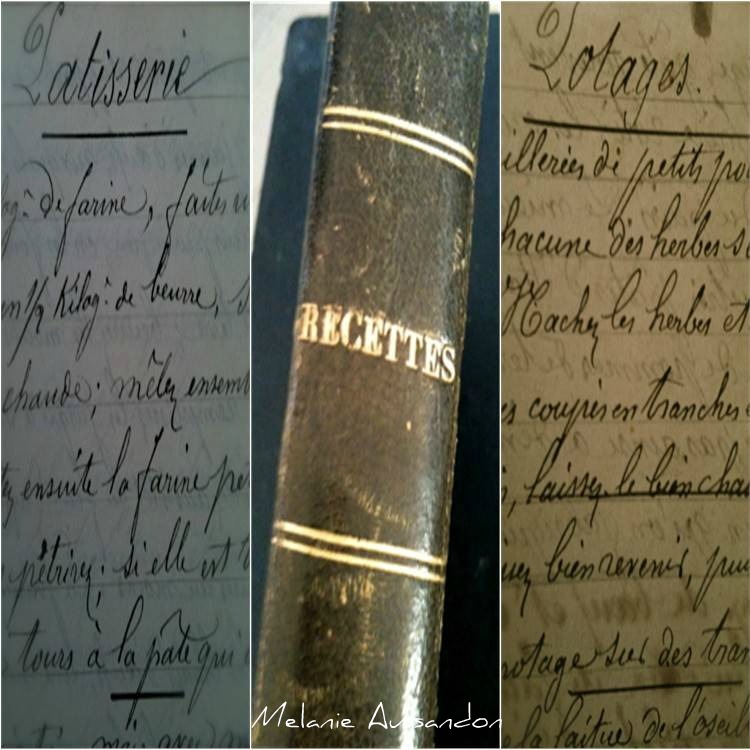 Patisserie
log. de farine, faites u
en 1/2 Kilog. de beurre, s
chaude; mêlez ensem
ez ensuite la farine pé
pétrirez; si elle est t
tours à la pâte qui
RECETTES
Melanie Aussandon
Potages.
illerées de petits po
hacune des herbes s
Hachez les herbes et
es coupés en tranches
, laissez-le bien chau
uez bien revenir, pui
potage sur des tran
la laitue de l'oseil